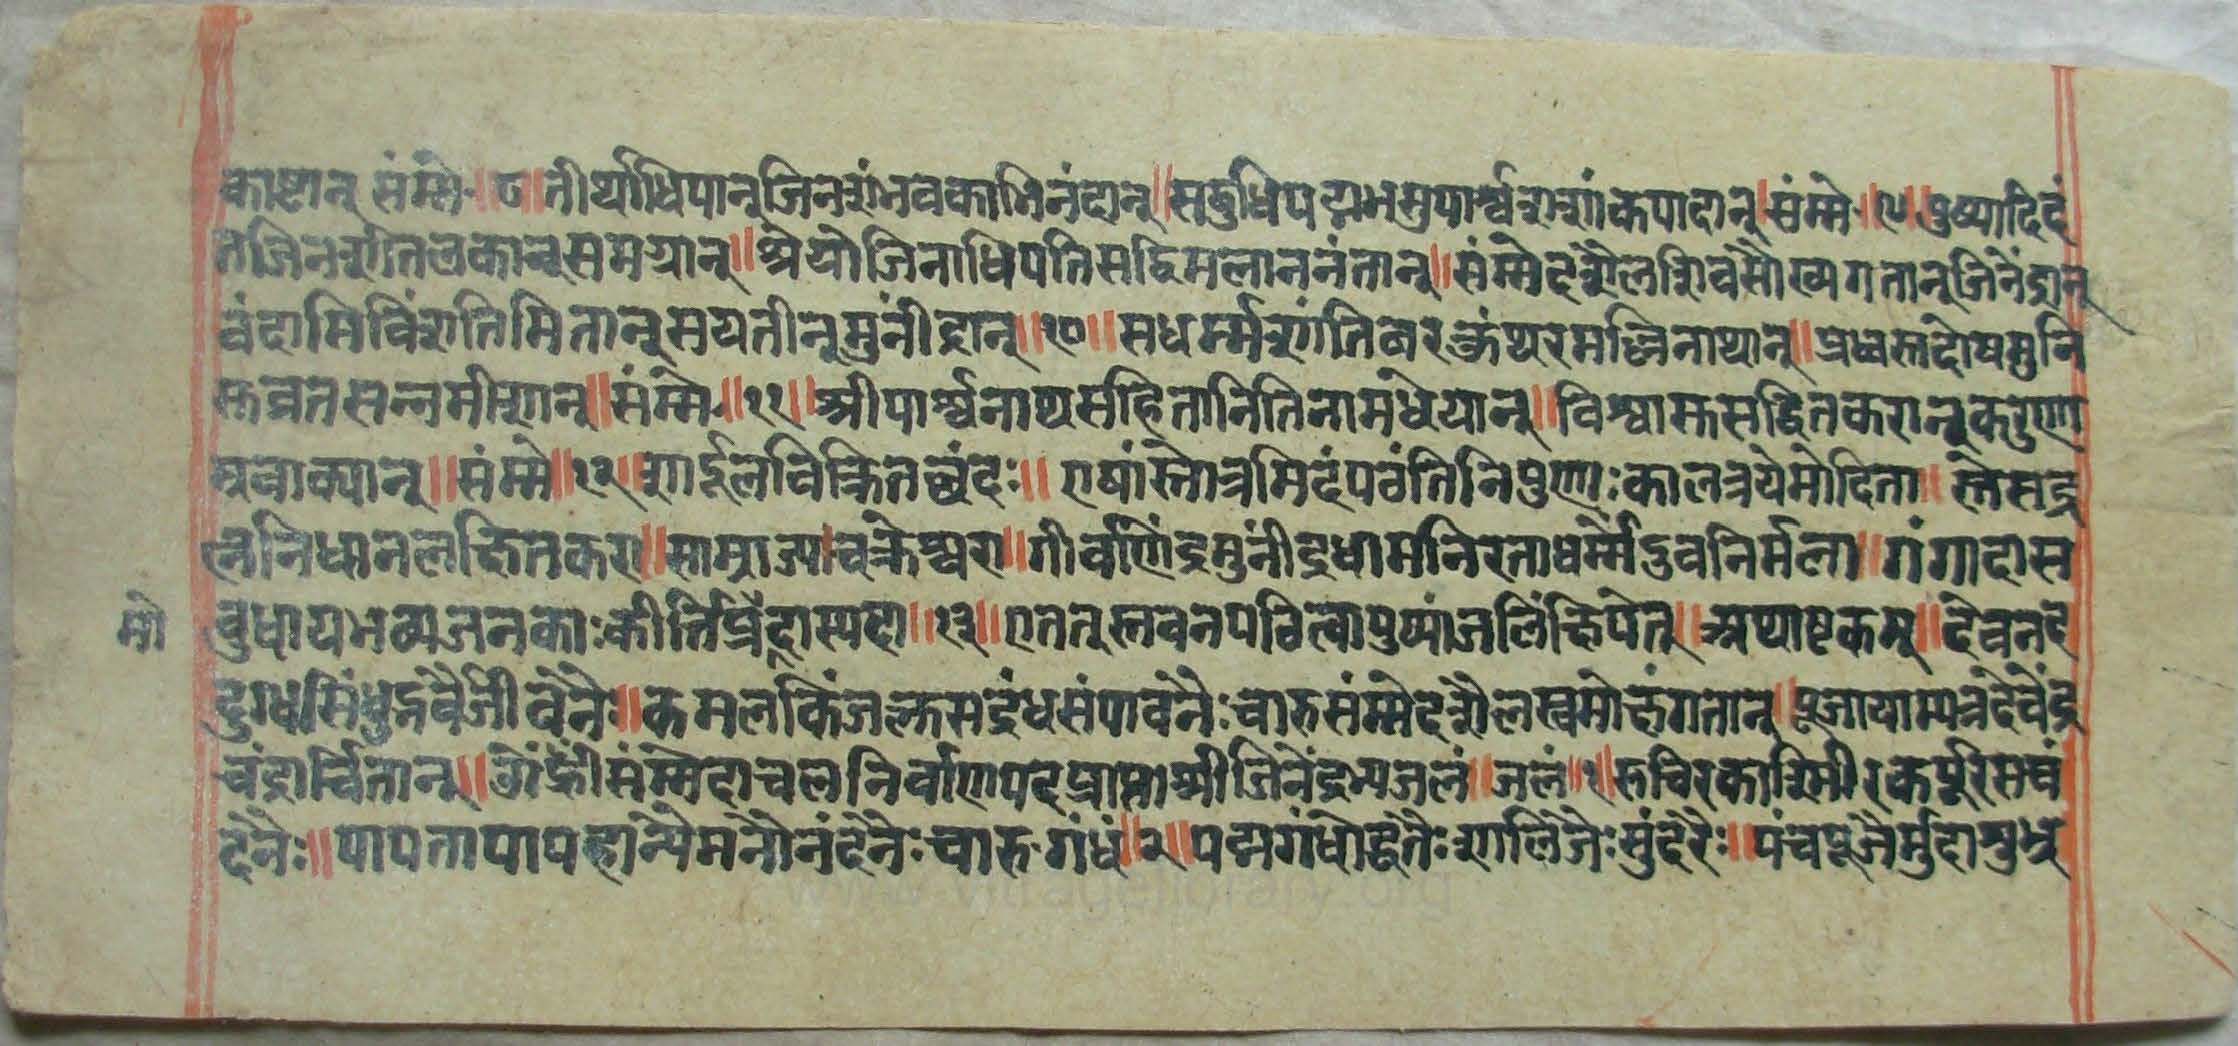 काष्टान् संम्मे ॥ ८ ॥ तीर्थाधिपान् जिनशंभवकाभिनंदान् ॥ सद्बुधिपद्मप्रभसुपार्श्वशशांकपादान् । संम्मे ॥ ९ ॥ पुष्पादिदं
तजिनशीतलकान् समग्रान् ॥ श्रेयोजिनाधिपतिसद्विमलाननंतान् ॥ संम्मेदशैलशिवसौख्यगतान् जिनेंद्रान्
वंदामि विंशतिमितान् सयतीन् मुनींद्रान् ॥ १० ॥ सधर्म्मशांतिवरकुंथरमल्लिनाथान् ॥ प्रध्वस्तदोषमुनि
सुव्रतसन्नमीशान् ॥ संम्मे ॥ ११ ॥ श्रीपार्श्वनाथसहितानितिनामधेयान् ॥ विश्वास्तसद्धितकरान् करुणा
म्रवाक्यान् ॥ संम्मे ॥ १२ ॥ शार्दूलविक्रितछंदः ॥ एषांस्तोत्रमिदं पठंति निपुणाः कालत्रये मोदिता । स्तेसद्र
त्ननिधानलक्षितकरा ॥ साम्राज्या चक्रेश्वरा ॥ गीर्वाणेंद्रमुनींद्रधामनिरता धर्म्मेद्रुवनिर्मला ॥ गंगादास
बुधाय भव्यजनकाः कीर्त्तिप्रदास्पदा ॥ १३ ॥ एतत् स्तवन पठित्वा पुष्पांजलिं क्षिपेत् ॥ अथाष्टकम् ॥ देवनद
मो
दुग्धसिंधुद्भवैर्जीवनैः ॥ कमलकिंजल्कसद्गंधसंपावनैः चारुसंम्मेदशैलस्वमोक्षंगतान् । पूजायाम्यत्रदेवेंद्र
चंद्रार्चितान् ॥ ओं ह्रीं संम्मेदाचलनिर्वाणपदप्राप्ताश्रीजिनेंद्राभ्यजलं ॥ जलं ॥ १ ॥ रुचिरकाश्मिरकर्पूरसघं
दनैः ॥ पापतापापहान्यैमनोनंदनैः चारु गंधं ॥ २ ॥ पद्मगंधोद्धतैः शालिजैः सुंदरैः ॥ पंचपूजैर्मुदा शुभ्र
www.vitragelibrary.org